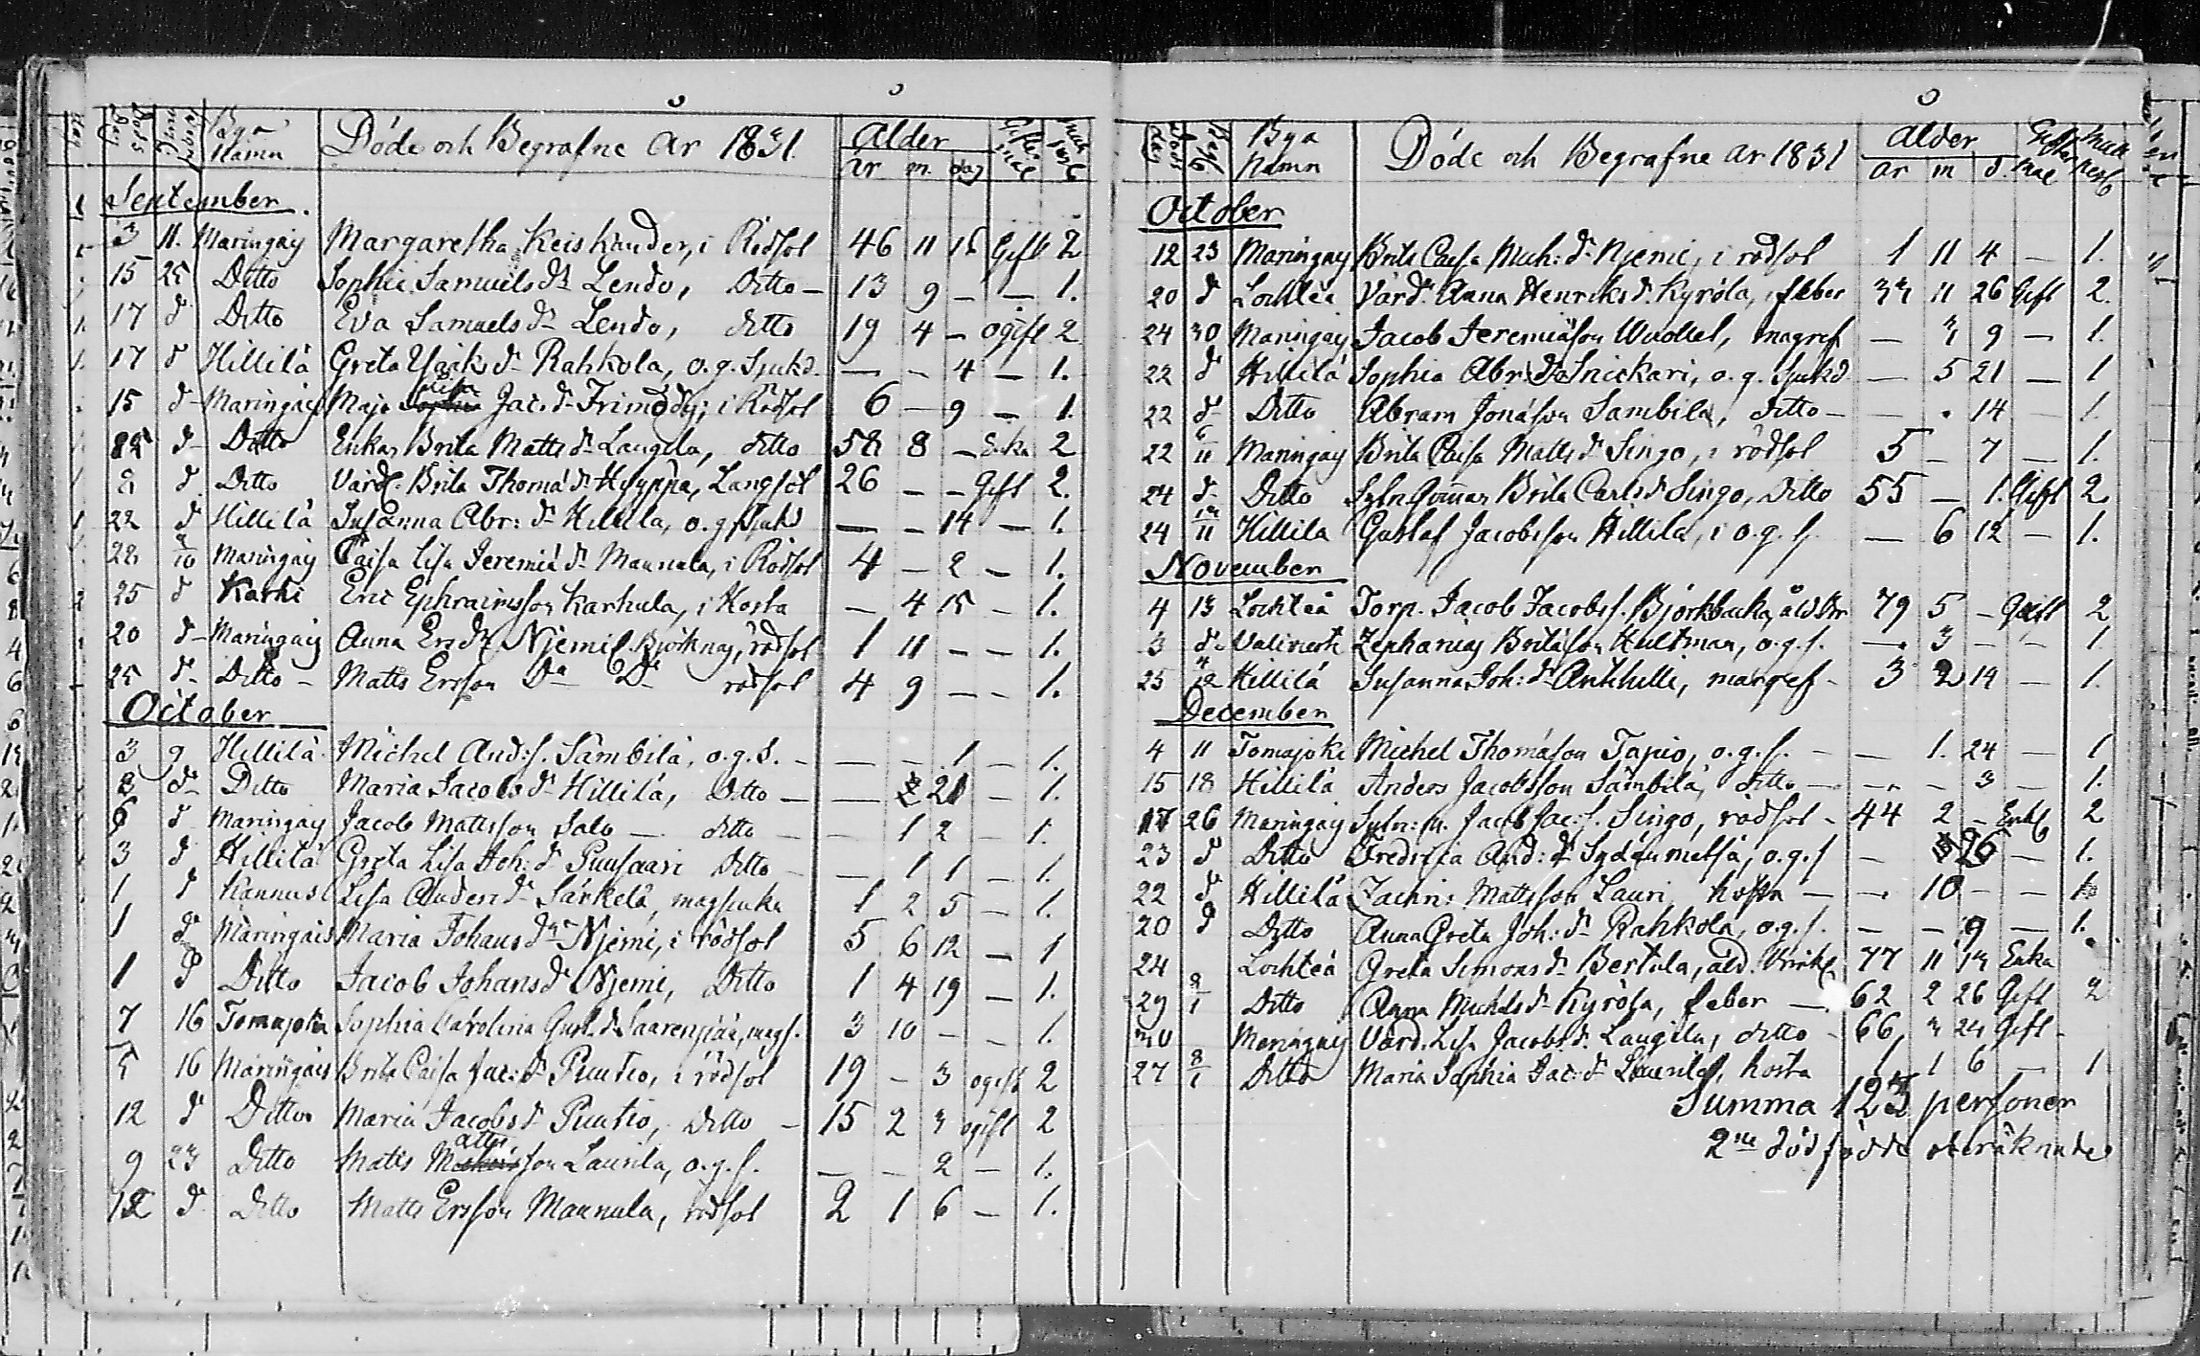 Döds Dag
Bya Namn Döde och Begrafne År 1831. Ålder
år m. dag
September
3 11. Maringais Margaretha Keiskander, i Rödsot 46 11 15 Gift 2
15 25 Ditto Sophia Samuels dr Lendo, Ditto - 13 9 - - 1.
17 d Ditto Eva Samuels dr Lendo, ditto 19 4 - ogift 2
17 d Hillilä Greta dr Rahkola, o.g. Sjukd. - - 4 - 1.
15 d Maringais Maja Lisa Jac. dr Frimodig, i Rödsot 6 - 9 - 1.
d Ditto Enkan Brita Matts dr Laugila, ditto 58 8 - Enka 2
8 d Ditto Värd. Brita Thomä dr Hyyppä, Langsot 26 - - Gift 2.
22 d Hillilä Susanna Abr: dr Hillilä, o.g. Sjukd - - 14 - 1.
28 2/10 Maringais Caisa Lisa Jeremiä dr Mannula, i Rödsot 4 - 2 - 1.
25 d Karhi Eric Ephraimsson Karhula, i Hosta - 4 15 - 1.
20 d Maringais Anna Ers dr Njemi l. Björknäs, rödsot 1 11 - - 1.
25 d Ditto - Matts Ersson Do Do rödsot 4 9 - - 1.
October
3 9 Hillilä Michel And:s. Sämbilä, o.g.S. - - - 1 - 1.
3 d Ditto Maria Jacobs dr Hillilä, Ditto - - 21 - 1.
6 d Maringais Jacob Mattsson Salo - ditto - - 1 2 - 1.
3 d Hillilä Greta Lisa Joh: dr Puusaari Ditto - - 1 1 - 1.
1 d Kannus Lisa Anders dr Särkelä, magsjuka 1 2 5 - 1.
1 d Maringais Maria Johans dr Njemi, i rödsot 5 6 12 - 1
1 d Ditto Jacob Johans d Njemi, Ditto 1 4 19 - 1.
7 16 Tomajoki Sophia Carolina Gust. dr Saarenpää, mags. 3 10 - - 1.
5 16 Maringais Brita Caisa Jac: dr Puutio, i rödsot 19 - 3 ogift 2
12 d Ditto Maria Jacobs dr Puutio, Ditto - 15 2 3 ogift 2
9 23 Ditto Matts Mattsson Laurila, o.g.s. - - 2 - 1.
12 d Ditto Matts Ersson Mannula, rödsot 2 1 6 - 1.
Bya Namn Döde och Begrafne År 1831 Ålder
år m d.
October
12 23 Maringais Brita Caisa Mich: dr Njemi, i rödsot 1 11 4 - 1.
20 d Lochteå Värd. Anna Henriks dr Kyrölä, i feber 11 26 Gift 2.
24 30 Maringais Jacob Jeremiäson Wuollet, magref - 3 9 - 1.
22 d Hillilä Sophia Abr: dr Snickari, o.g. Sjukd - 5 21 - 1
22 d Ditto Abram Jonäson Sambila, ditto - - 14 - 1.
22 6/11 Maringais Brita Caisa Matts dr Singo, i rödsot 5 - 7 - 1.
24 d Ditto Brita Carls dr Singo, Ditto 55 - 1. Gift 2
24 11 Hillilä Gustaf Jacobsson Hillilä, i o.g.s. - 6 12 - 1.
November
4 13 Lochteå Torp. Jacob Jacobss. Björkbacka, 79 5 - Gift 2
3 d Zepharias Britäson Hultman, o.g.s. - 3 - - 1.
25 4/12 Hillilä Susanna Joh: dr Anthilli, magref - 3 2 14 - 1.
December
4 11 Tomajoki Michel Thomäson Tapio, o.g.s. - - 1. 24 - 1
15 18 Hillilä Anders Jacobsson Sämbilä, ditto - - - 3 - 1.
17 26 Maringais Jacob Jac:s. Singo, rödsot - 44 2 - Enkl 2
23 d Ditto Fredrica And: dr Sydänmetsä, o.g.s - 26 - 1.
22 d Hillilä Zachri: Mattsson Lauri, hosta - - 10 - - 1.
20 d Ditto Anna Greta Joh: dr Rahkola, o.g.s. - - 9 - 1.
24 Lochteå Greta Simons dr Bertula, åld. 77 11 13 Enka
29 8/1 Ditto Anna Michels dr Kyrölä, feber - 62 2 26 Gift 2
30 Maringais Värd. Lisa Jacobs d. Laugila, ditto - 66, 3 24 Gift -
27 8/1 Ditto Maria Sophia Jac: dr Laurila, hosta 1 1 6 - 1
Summa 125 personer
2ne dödfödde oberäknade